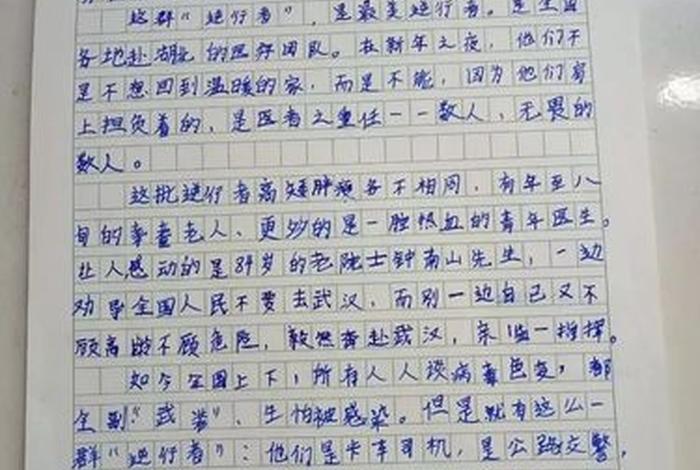 这群“逆行者”，是最美逆行者。是全国
各地赴湖北的医疗团队。在新年之夜，他们不
是不想回到温暖的家，而是不能，因为他们肩
上担负着的，是医者之重任——救人，无畏的
救人。
这批逆行者高矮胖瘦各不相同，有年至八
旬的耄耋老人、更多的是一腔热血的青年医生。
让人感动的是84岁的老院士钟南山先生，一边
劝导全国人民不要去武汉，而别一边自己又不
顾高龄不顾危险，毅然奔赴武汉，亲临一指挥。
如今全国上下，所有人人谈病毒色变，都
全副“武装”、生怕被感染。但是就有这么一
群“逆行者”：他们是卡车司机，是公路交警，